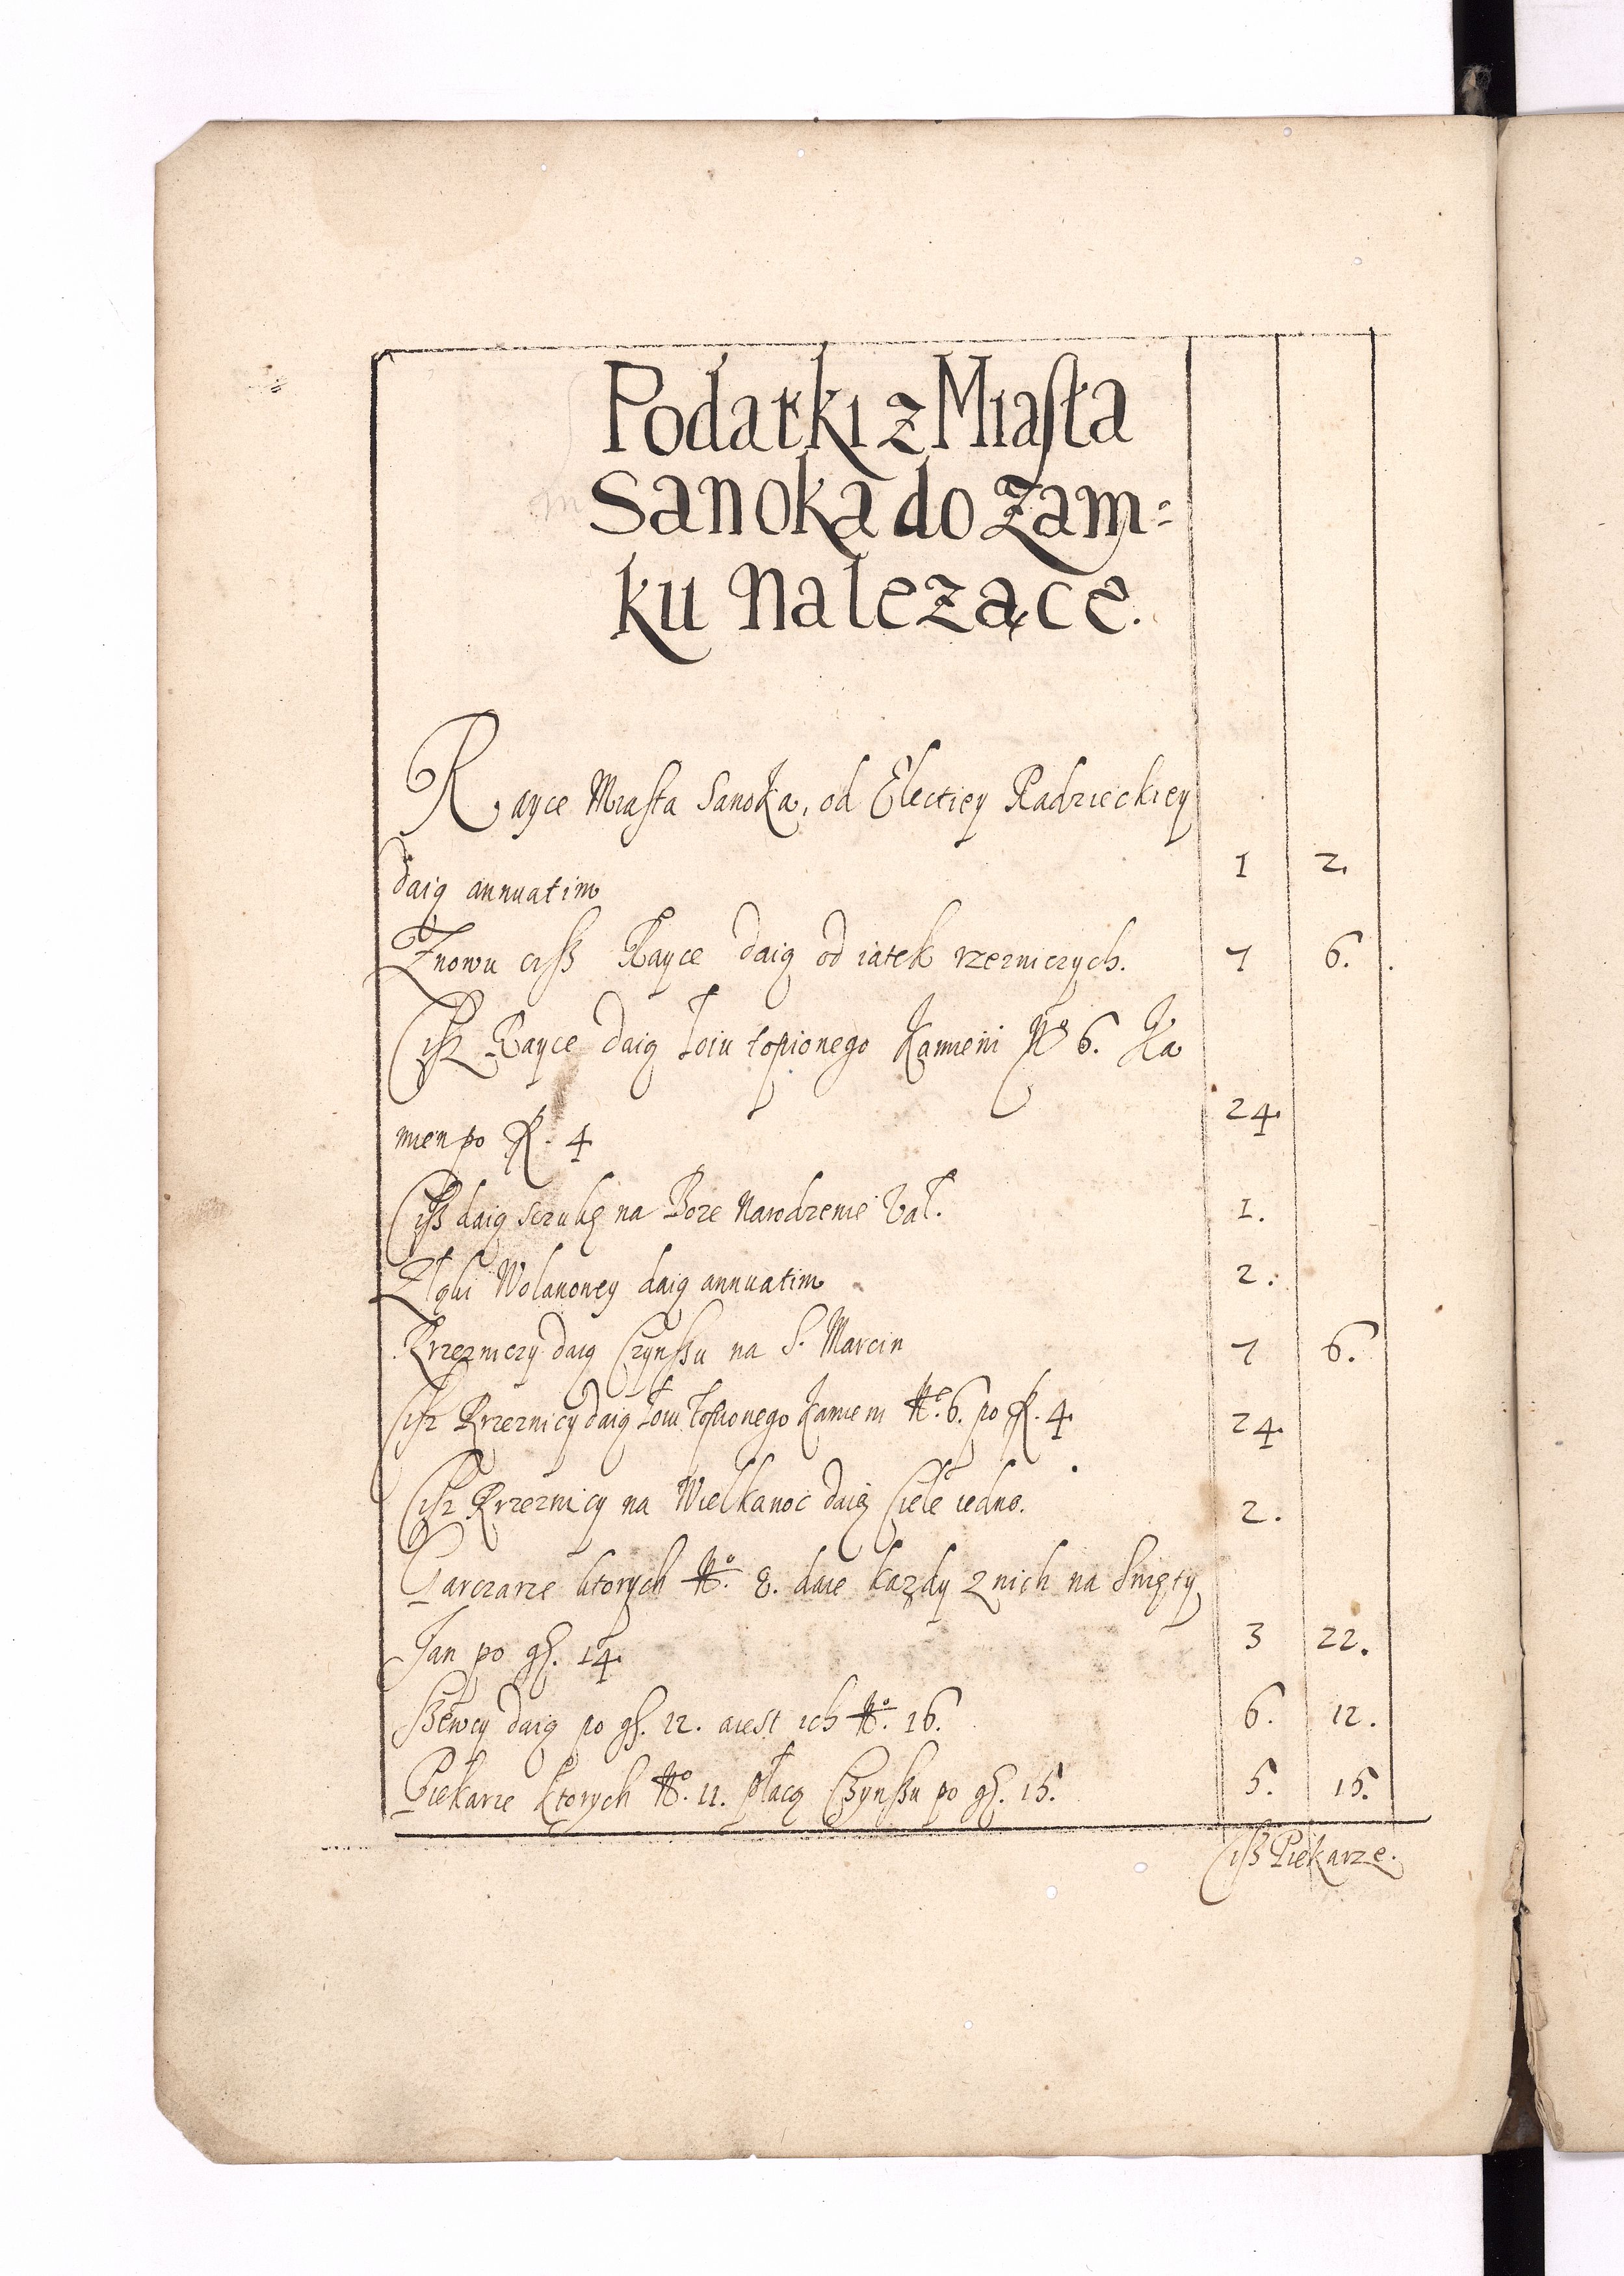 Podatki z Miasta
Sanoka do Zam=
ku nalezące.
Rayce Miasta Sanoka, od Electiey Radzieckiey
daią annuatim 1 2.
Znowu ciss Rayce daią od iatek rzezniczych. 7 6.
Cisz Rayce daią Łoiu topionego Kamieni No 6. Ka
mien po f. 4 24.
Ciss daią sczukę na Boze Narodzenie Val. 1.
Z Łąki Wolanowey daią annuatim 2.
Rzezniczy daią Czynssu na S. Marcin 7 6.
Cisz Rzeznicy daią Łoiu Topionego Kamieni No. 6. po f. 4. 24.
Cisz Rzeznicy na Wielkanoc daią Ciele iedno. 2.
Garczarze ktorych No. 8. daie kazdy z nich na Swięty
Jan po gs. 14. 3 22.
Szewcy daią po gs. 12. a iest ich No. 16. 6. 12.
Piekarze ktorych No. 11. płacą Czynssu po gs. 15. 5. 15.
Ciss Piekarze.